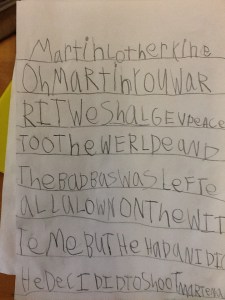 MartinLotherKinG
OhMArtinYOUWAR
RITWeShALGEVPEACE
TOOTheWERLDeAND
TheBADBASWASLeFTe
ALLALOWNONTheWIT
TeMeBUTHeHADANIDIC
HeDeCIDIDTOShOOTMARTEN